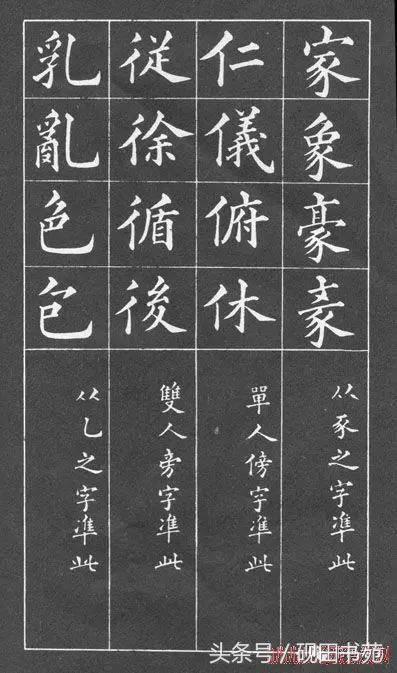 家象豪
从豕之字凖此
仁儀俯休
單人傍字凖此
従徐循後
雙人旁字凖此
乳亂色包
从乚之字凖此
头条号/砚田书苑